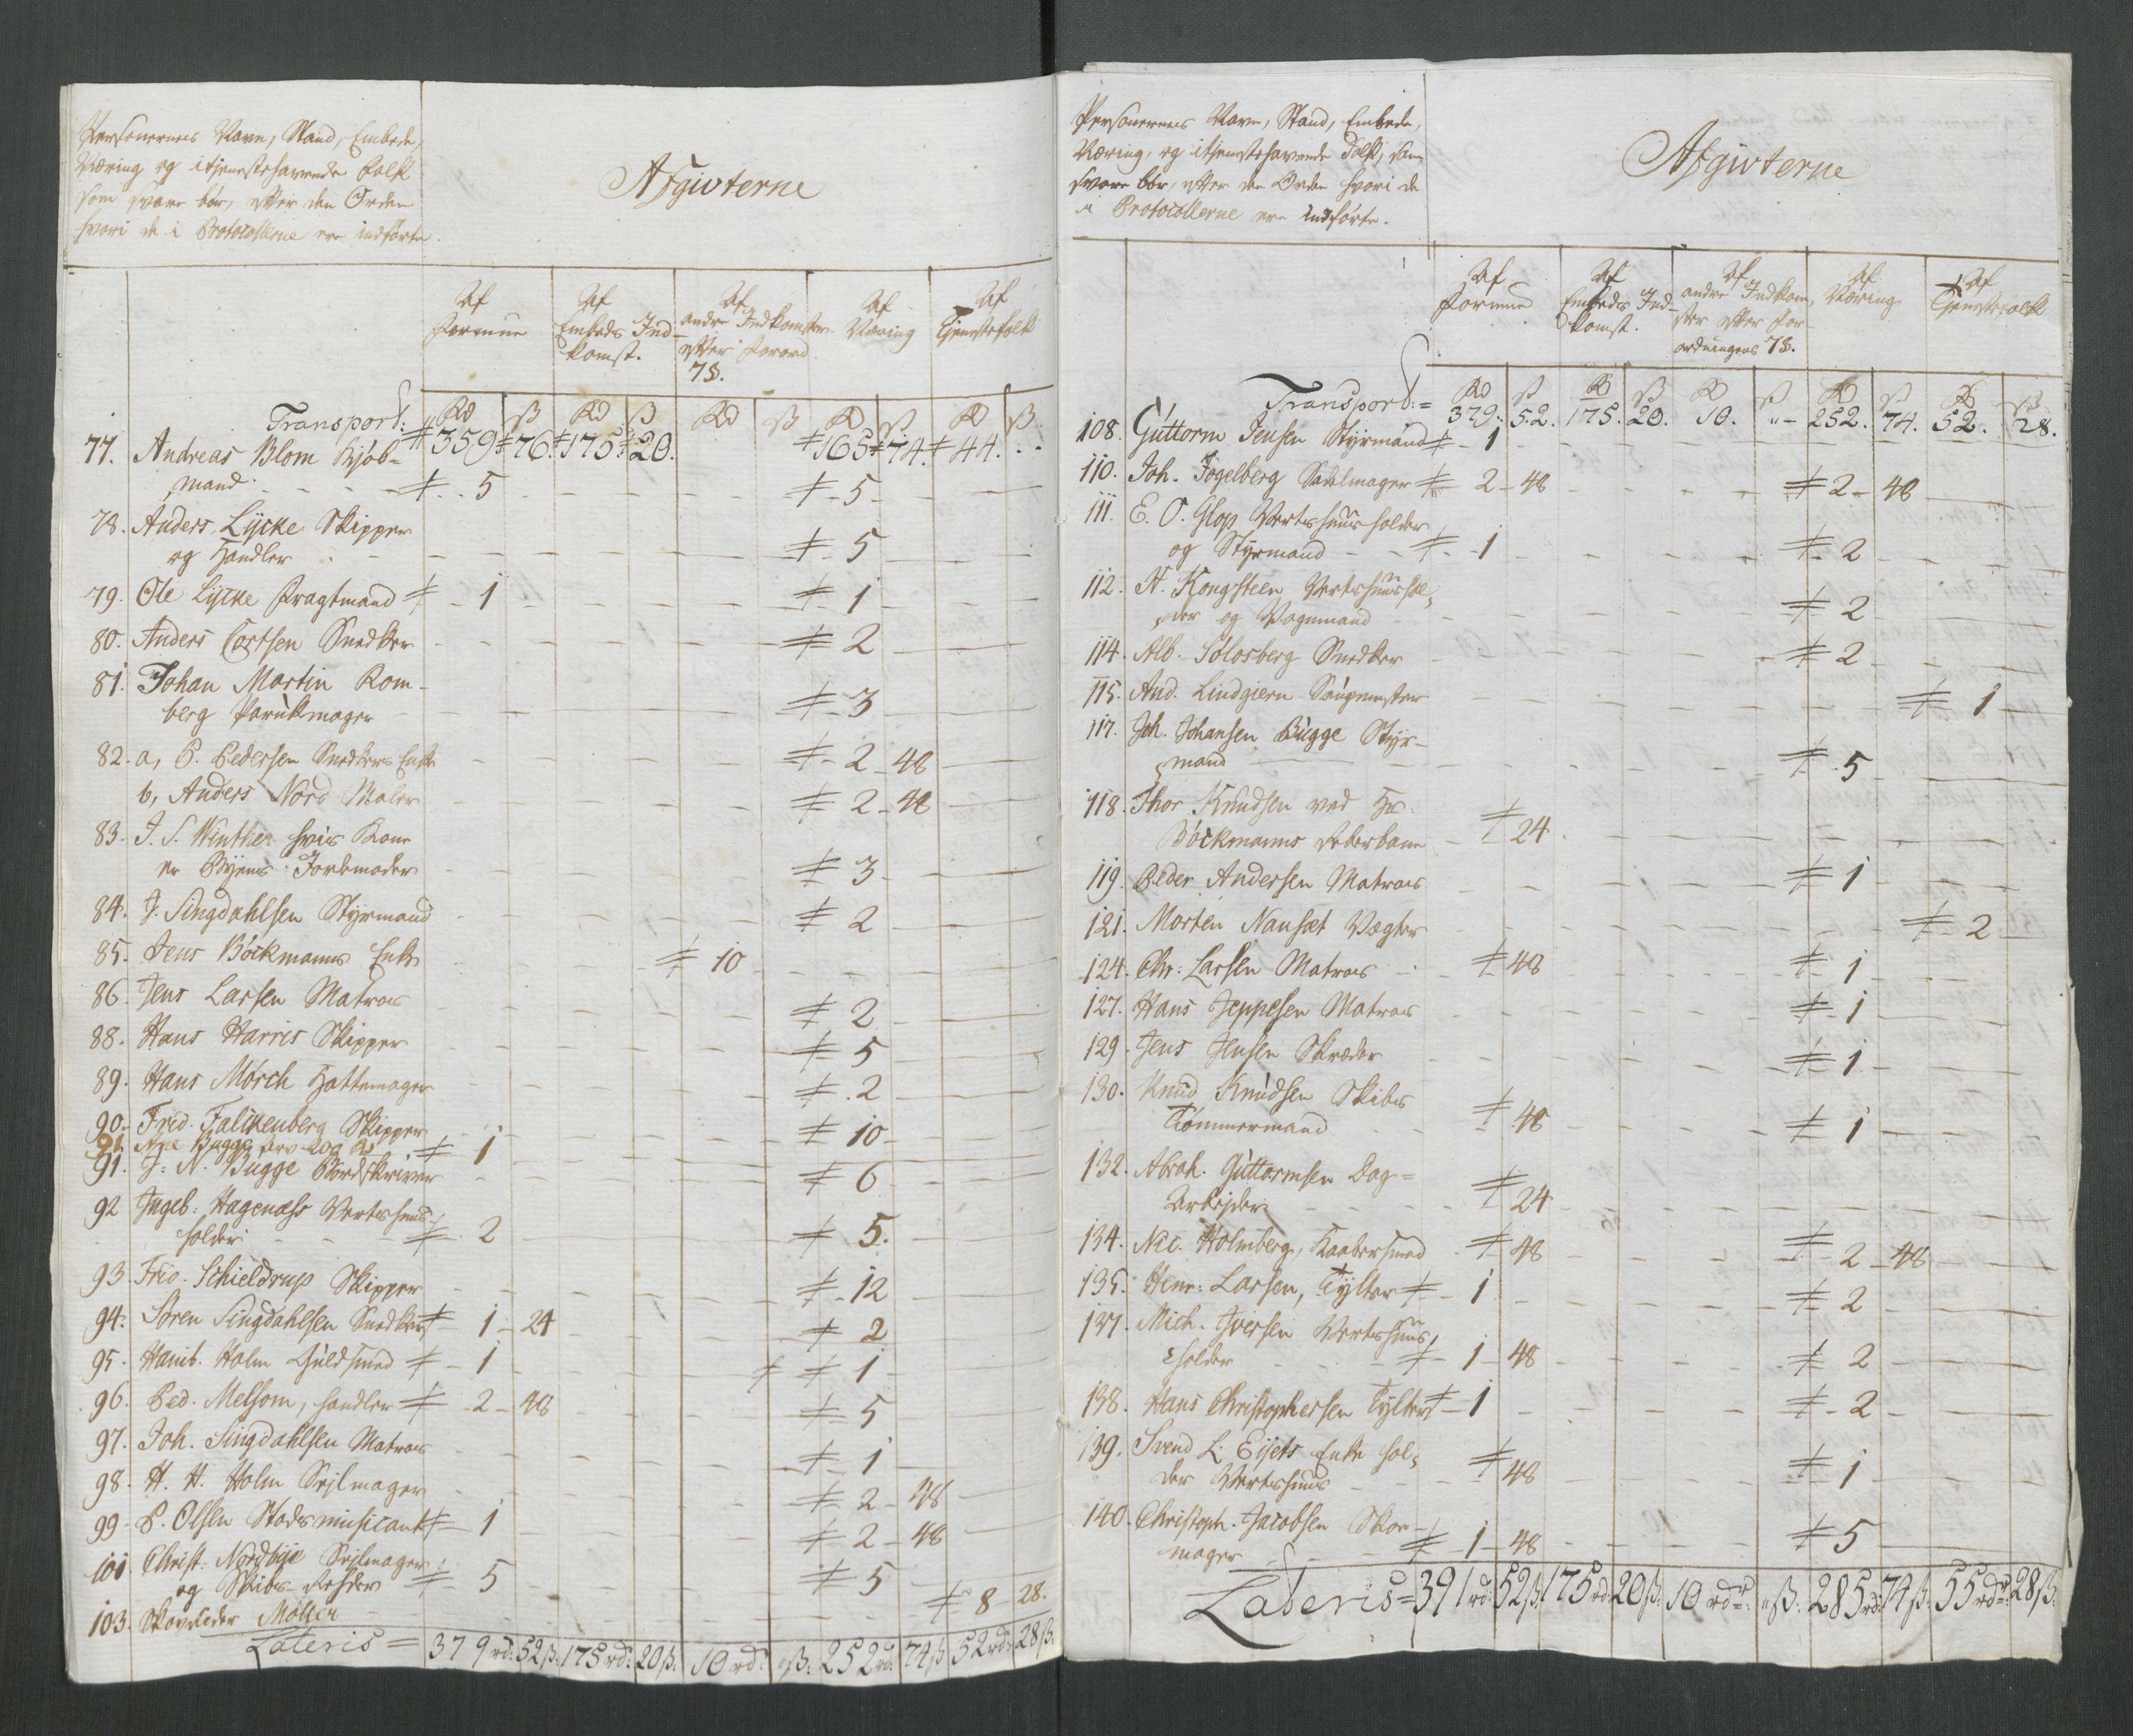 Personernes Navn, Stand, Embede,
Næring og itjenestehavende Folk
som svare bør, efter den Orden
hvori de i Protocollerne ere indførte.
Afgivterne
Af Formue
Af Embeds Indkomst.
Af andre Indkomster efter Forord. 7§.
Af Næring
Af Tjenestefolk
Rd ß Rd ß Rd ß Rd ß Rd ß
Transport: 359 76. 175 20. 165 74. 44. - -
77. Andreas Blom Kjøb-
mand - - 5 - 5
78. Anders Lycke Skipper
og Handler - 5
79. Ole Lycke Fragtmand - 1 - 1
80. Anders Cortsen Snedker - 2
81. Johan Martin Rom-
berg Parukmager - 3
82. a, P. Pedersen Snedkers Enke - 2 - 48
b, Anders Nord Maler - 2 - 48
83. J. S. Winther hvis Kone
er Byens Jordemoder - 3
84. J. Singdahlsen Styrmand - 2
85. Jens Böckmanns Enke - 10
86. Jens Larsen Matros - 2
88. Hans Harris Skipper - 5
89. Hans Mörch Hattemager - 2
90. Frid. Falckenberg Skipper - 10
91. Bugge Arv 200 Rd - 1
91. J. N. Bugge Bordskriver - 6
92 Ingeb. Hagenæss Vertshuus-
holder - 2 - 5.
93. Frid. Schieldrup Skipper - 12
94. Søren Singdahlsen Snedker - 1 - 24 - 2
95. Hanib. Holm Guldsmed - 1 - 1
96. Ped. Melsom, handler - 2 - 48 - 5
97. Joh. Singdahlsen Matros - 1
98. H. H. Holm Sejlmager - 2 - 48
99. P. Olsen Stadsmusicant - 1 - 2 - 48
101 Christ. Nordbye Sejlmager
og Skibs-Rehder - 5 - 5
103. Møller - 8 - 28.
Lateris = 379 rd: 52 ß: 175 rd: 20 ß: 10 rd: " ß: 252 rd: 74 ß 52 rd: 28 ß:
Personernes Navn, Stand, Embede,
Næring, og itjenestehavende Folk, som
svare bör, efter den Orden hvori de
i Protocollerne ere indførte.
Afgivterne
Af Formue
Af Embeds Indkomst.
Af andre Indkomster efter Forordningens 7§.
Af Næring
Af Tjenestefolk
Rd ß Rd ß Rd ß Rd ß Rd ß
Transport: = 379. 52. 175. 20. 10. " - 252. 74. 52. 28.
108. Guttorm Jensen Styrmand - 1
110. Joh. Fogelberg Sadelmager 2 - 48 - 2 - 48
111. E. O. Glop Vertshuusholder
og Styrmand - 1 - 2
112. N. Kongsteen Vertshuushol-
der og Vognmand - 2
114. Alb. Solosberg Snedker - 2
115. And. Lindgiern - 1
117. Joh. Johansen Bugge Styr-
mand - 5
118. Thor Knudsen ved Hr.
Böckmanns Reberbane - 24
119. Peder Andersen Matros - 1
121. Morten Nanset Vægter - 2
124. Chr. Larsen Matros - 48 - 1
127. Hans Jeppesen Matros - 1
129. Jens Jensen Skræder - 1
130. Knud Knudsen Skibs
Tömmermand - 48 - 1
132. Abrah. Guttormsen Dag-
Arbejder - 24
134. Nic. Holmberg, Kaabersmed - 48 - 2 - 48
135. Henr. Larsen, Tylter - 1 - 2
137. Mich. Iversen Vertshuus-
holder - 1 - 48 - 2
138. Hans Christophersen Tylter - 1 - 2
139. Svend L. Eijets Enke hol-
der Vertshuus - 48 - 1
140. Christoph. Jacobsen Skoe-
mager - 1 - 48 - 5
Lateris = 391 rd: 52 ß: 175 rd: 20 ß: 10 rdr: " ß: 285 rd: 74 ß: 55 rdr: 28 ß: